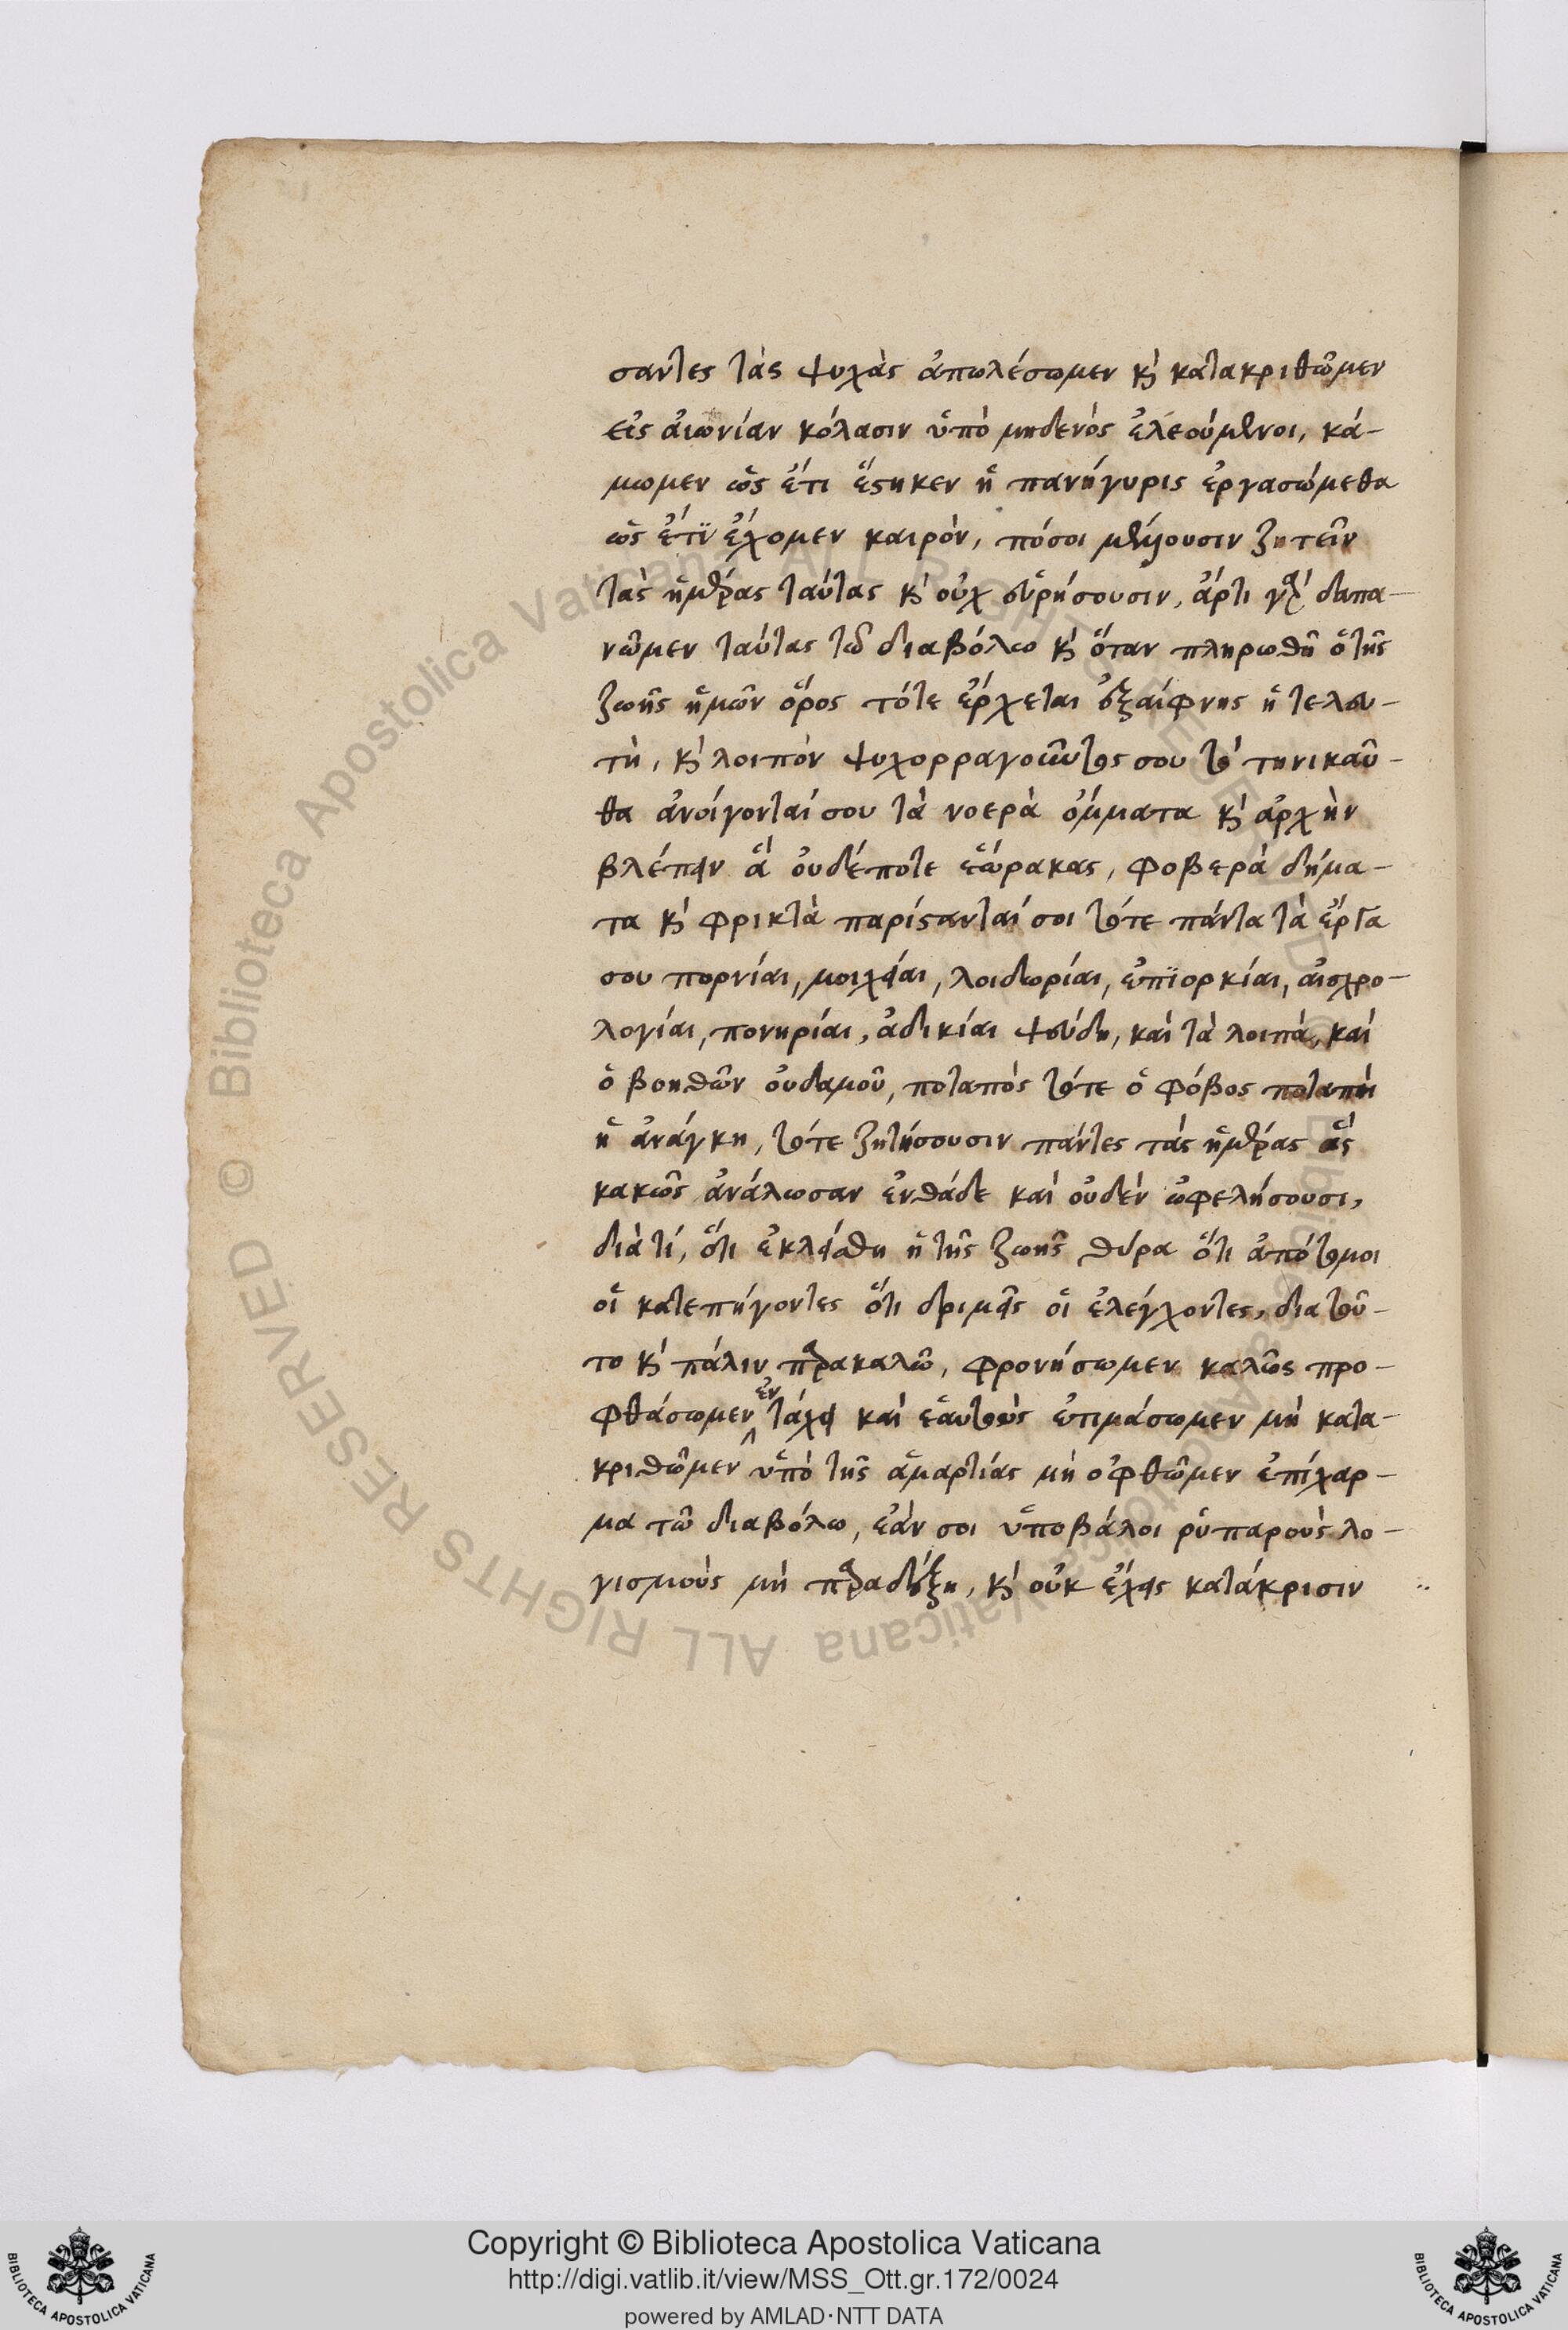 σαντες τὰς ψυχὰς ἀπωλέσωμεν κ̀ κατακριθῶμεν
εἰς ἀιωνίαν κόλασιν ὑπὸ μηδενὸς ἐλεούμενοι, κά-
μωμεν ὡς ἔτι ἕστηκεν ἡ πανήγυρις ἐργασώμεθα
ὡς ἔτϊ ἔχομεν καιρὸν, πόσοι μέλλουσιν ζητεῖν
τὰς ἡμέρας ταύτας κ̀ οὐχ εὑρήσουσιν, ἄρτι γὰρ δαπα-
νῶμεν ταύτας τῶ διαβόλω κ̀ ὅταν πληρωθῆ ὁ τῆς
ζωῆς ἡμῶν ὅρος τότε ἔρχεται ἐξαίφνης ἡ τελευ-
τὴ, κ̀ λοιπὸν ψυχορραγοῦντος σου τὸ τηνικαῦ-
θα ἀνοίγονταί σου τὰ νοερὰ ὄμματα κ̀ ἀρχὴν
βλέπειν ἃ οὐδέποτε ἑώρακας, φοβερὰ δήμα-
τα κ̀ φρικτὰ παρίστανταί σοι τότε πάντα τὰ ἔργα
σου πορνίαι, μοιχείαι, λοιδωρίαι, ἐπϊορκίαι, αἰσχρο-
λογίαι, πονηρίαι, ἀδικίαι ψεύδη, καὶ τὰ λοιπὰ, καὶ
ὁ βοηθῶν οὐδαμοῦ, ποταπὸς τότε ὁ φόβος ποταπὴ
ἡ ἀνάγκη, τότε ζητήσουσιν πάντες τὰς ἡμέρας ἃς
κακῶς ἀνάλωσαν ἐνθάδε καὶ οὐδὲν ὠφελήσουσι,
διὰ τί, ὅτι ἐκλείσθη ἡ τῆς ζωῆς θύρα ὅτι ἀπότομοι
οἱ κατεπήγοντες ὅτι δριμεῖς οἱ ἐλέγχοντες, δια τοῦ-
το κ̀ πάλιν παρακαλῶ, φρονήσωμεν καλῶς προ-
φθάσωμεν ἐν τάχει καὶ ἑαυτοὺς ἑτιμάσωμεν μὴ κατα-
κριθῶμεν ὑπὸ τῆς ἁμαρτίας μὴ ὀφθῶμεν ἐπίχαρ-
μα τῶ διαβόλω, ἐάν σοι ὑποβάλοι ῥυπαροὺς λο-
γισμοὺς μὴ παραδέξη, κ̀ οὐκ ἔχεις κατάκρισιν
© Biblioteca Apostolica Vaticana ALL RIGHTS RESERVED
Copyright © Biblioteca Apostolica Vaticana
http://digi.vatlib.it/view/MSS_Ott.gr.172/0024
powered by AMLAD·NTT DATA
BIBLIOTECA APOSTOLICA VATICANA
BIBLIOTECA APOSTOLICA VATICANA